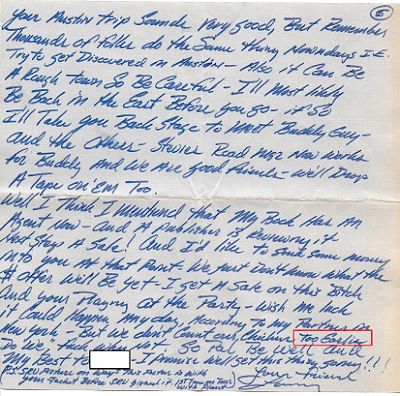 5
Your Austin trip Sounds Very good, But Remember
Thousands of Folks do the Same thing Nowadays I.E.
Try to get Discovered in Austin - Also it Can Be
A Rough Town So Be Careful - I'll Most likely
Be Back in the East Before you go - if So
I'll Take you Back Stage to Meet Buddy Guy -
And the Others - Stevies Road Mgr Now Works
for Buddy And We Are good friends - We'll Drop
A Tape on 'Em Too.
Well I Think I Mentioned that My Book Has An
Agent Now - And A Publisher is Reviewing it
Next Step A Sale! And I'd like to Send Some Money
into you At that Point - We Just Don't Know What the
$ offer We'll Be get - I get A Sale on this Bitch
And your Playing at the Party - Wish Me luck
it Could happen My day, According to My Partner in
New York - But We don't Count our Chickens Too Earlie
Do We"- So Pal, Be Well And
My Best to - I Promise We'll get this thing going!!!
Your Friend
P.S. SRV Picture on Way! this Picture is With
your Jacket Before SRV